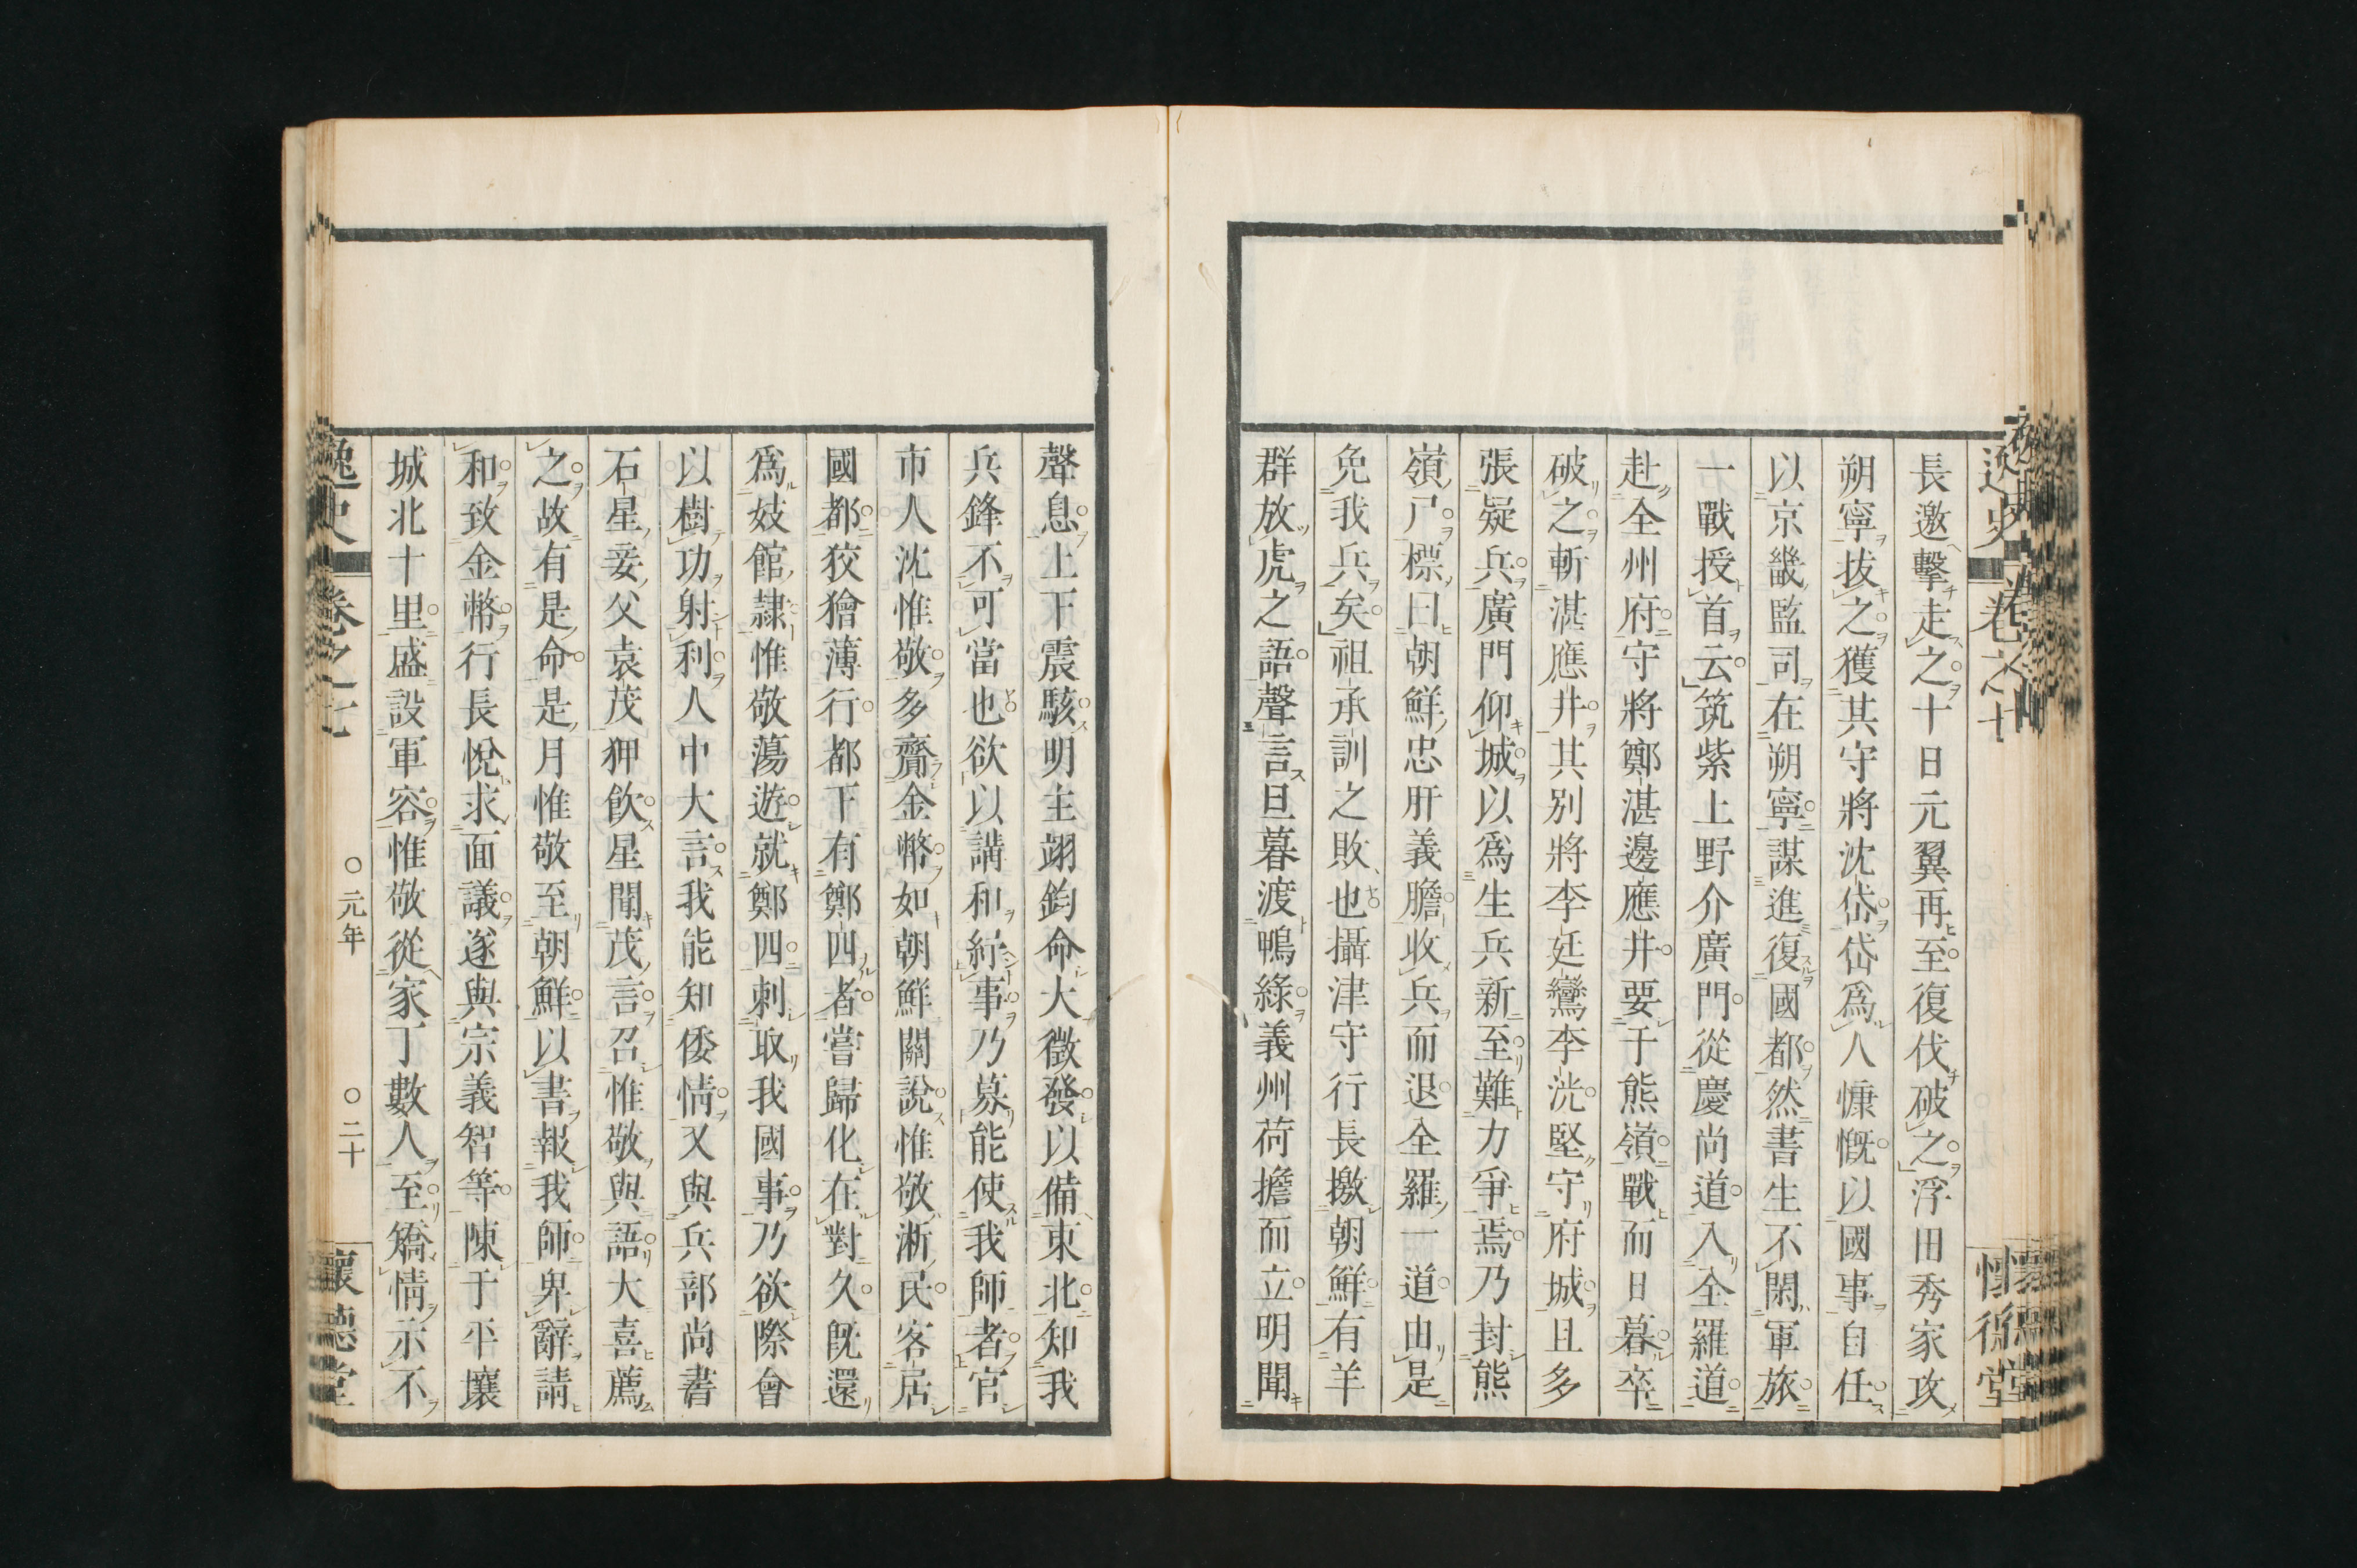 長邀擊走之十日元翼再至復伐破之浮田秀家攻
朔寧拔之獲其守將沈岱岱爲人慷慨以國事自任
以京畿監司在朔寧謀進復國都然書生不閑軍旅
一戰授首云筑紫上野介廣門從慶尚道入全羅道
赴全州府守將鄭湛邊應井要于熊嶺戰而日暮卒
破之斬湛應井其別將李廷鸞李洸堅守府城且多
張疑兵廣門仰城以爲生兵新至難力爭焉乃封熊
嶺尸標曰朝鮮忠肝義膽收兵而退全羅一道由是
免我兵矣祖承訓之敗也攝津守行長檄朝鮮有羊
群放虎之語聲言旦暮渡鴨綠義州荷擔而立明聞
聲息上下震駭明主翊鈞命大徵發以備東北知我
兵鋒不可當也欲以講和紓事乃募能使我師者官
市人沈惟敬多齎金幣如朝鮮關說惟敬淅民客居
國都狡獪薄行都下有鄭四者嘗歸化在對久旣還
爲妓館隷惟敬蕩遊就鄭四刺取我國事乃欲際會
以樹功射利人中大言我能知倭情又與兵部尚書
石星妾父袁茂狎飮星聞茂言召惟敬與語大喜薦
之故有是命是月惟敬至朝鮮以書報我師卑辭請
和致金幣行長悅求面議遂與宗義智等陳于平壤
城北十里盛設軍容惟敬從家丁數人至矯情示不
逸史
卷之七
○元年
○二十
懷德堂